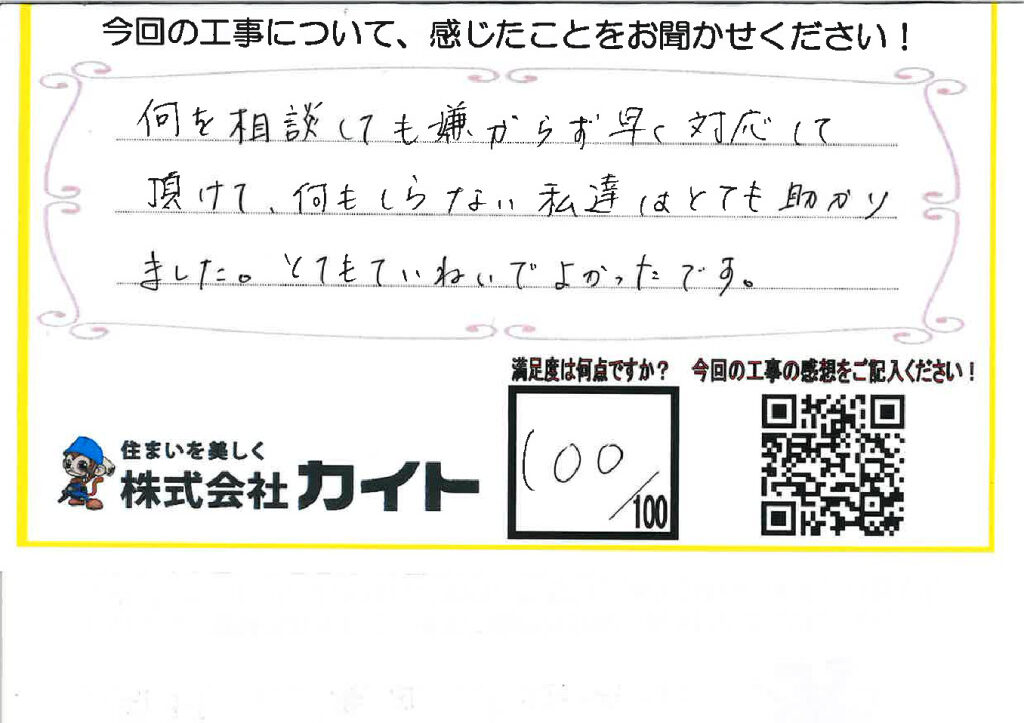 今回の工事について、感じたことをお聞かせください！
何を相談しても嫌からず早く対応して
頂けて、何もしらない私達はとても助かり
ました。とてもていねいでよかったです。
満足度は何点ですか？
今回の工事の感想をご記入ください！
100/100
住まいを美しく
株式会社カイト